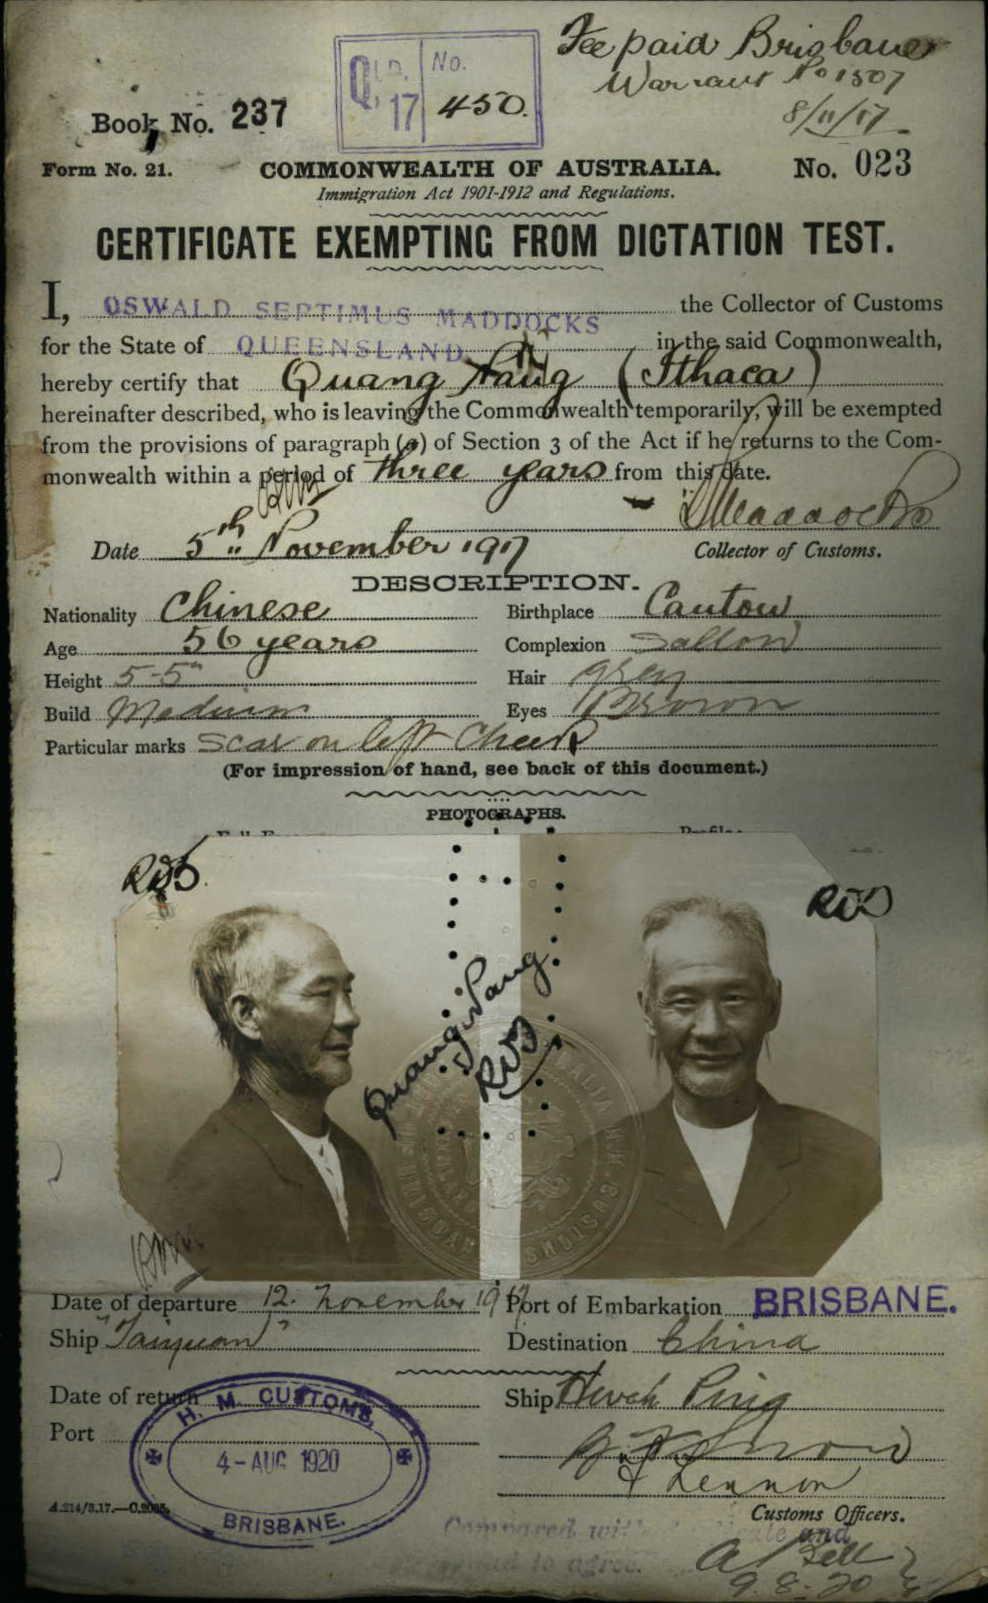 Fee paid Brisbane
Warrant No 1307
8/11/17
QLD. 17 No. 450.
Book No. 237
Form No. 21. COMMONWEALTH OF AUSTRALIA. No. 023
Immigration Act 1901-1912 and Regulations.
CERTIFICATE EXEMPTING FROM DICTATION TEST.
I, OSWALD SEPTIMUS MADDOCKS the Collector of Customs
for the State of QUEENSLAND in the said Commonwealth,
hereby certify that Quang (Ithaca)
hereinafter described, who is leaving the Commonwealth temporarily, will be exempted
from the provisions of paragraph (a) of Section 3 of the Act if he returns to the Com-
monwealth within a period of three years from this date.
Maddocks
Date 5th November 1917 Collector of Customs.
DESCRIPTION.
Nationality Chinese Birthplace Canton
Age 56 years Complexion Sallow
Height 5-5" Hair grey
Build Medium Eyes Brown
Particular marks Scar on left Cheek
(For impression of hand, see back of this document.)
PHOTOGRAPHS.
Quang
Date of departure 12. November 1917 Port of Embarkation BRISBANE.
Ship "Taiyuan" Destination China
Date of return Ship Hwah Ping
Port
H. M. CUSTOMS.
4-AUG 1920
BRISBANE.
Lennon
A.214/3.17.—C.2035. Customs Officers.
Compared with and
to agree.
9.8.20